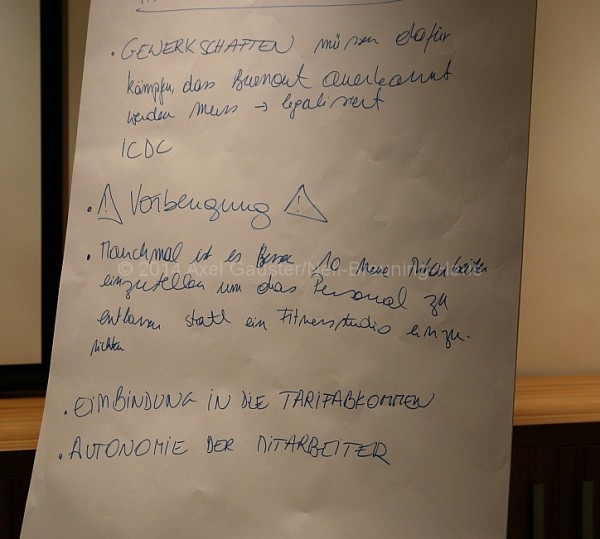 • GEWERKSCHAFTEN müssen dafür
kämpfen, das Burnout anerkannt
werden muss → legalisiert
ICDC
• ! Vorbeugung !
• Manchmal ist es Besser 10 neue Mitarbeiter
© 2014 Axel Gauster/Nell-Breuning-Haus
einzustellen um das Personal zu
entlassen statt ein Fitnessstudio einzu-
richten
• EINBINDUNG IN DIE TARIFABKOMMEN
• AUTONOMIE DER MITARBEITER